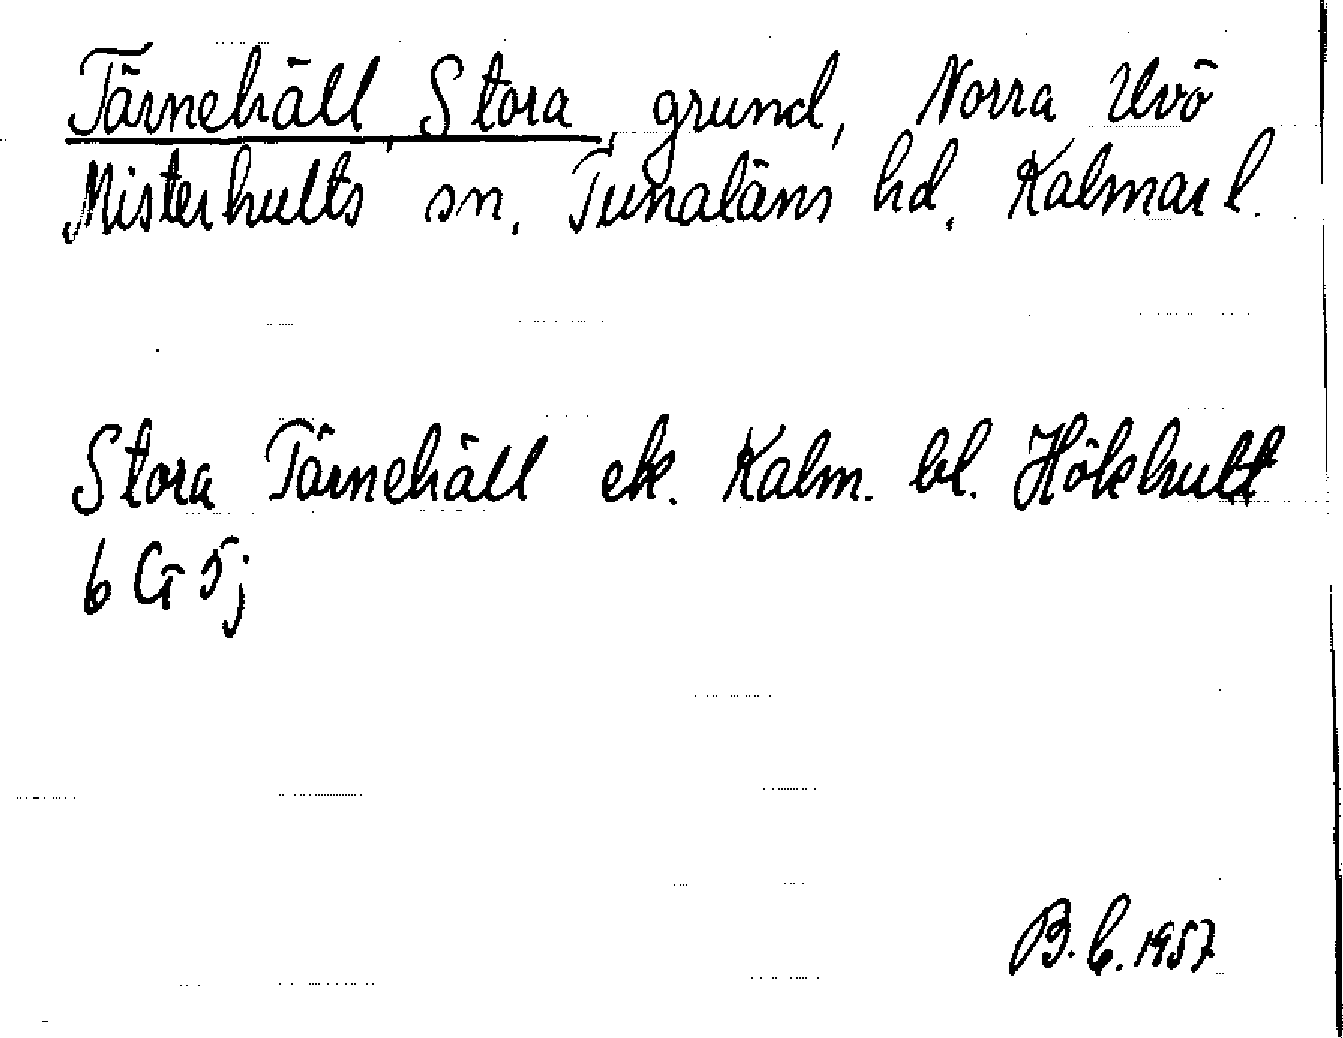 Tärnehäll, Stora, grund, Norra Uvö
Misterhults sn, Tunaläns hd, Kalmar l.
Stora Tärnehäll ek. Kalm. bl. Hökhult
6 G 5j
B. C. 1957